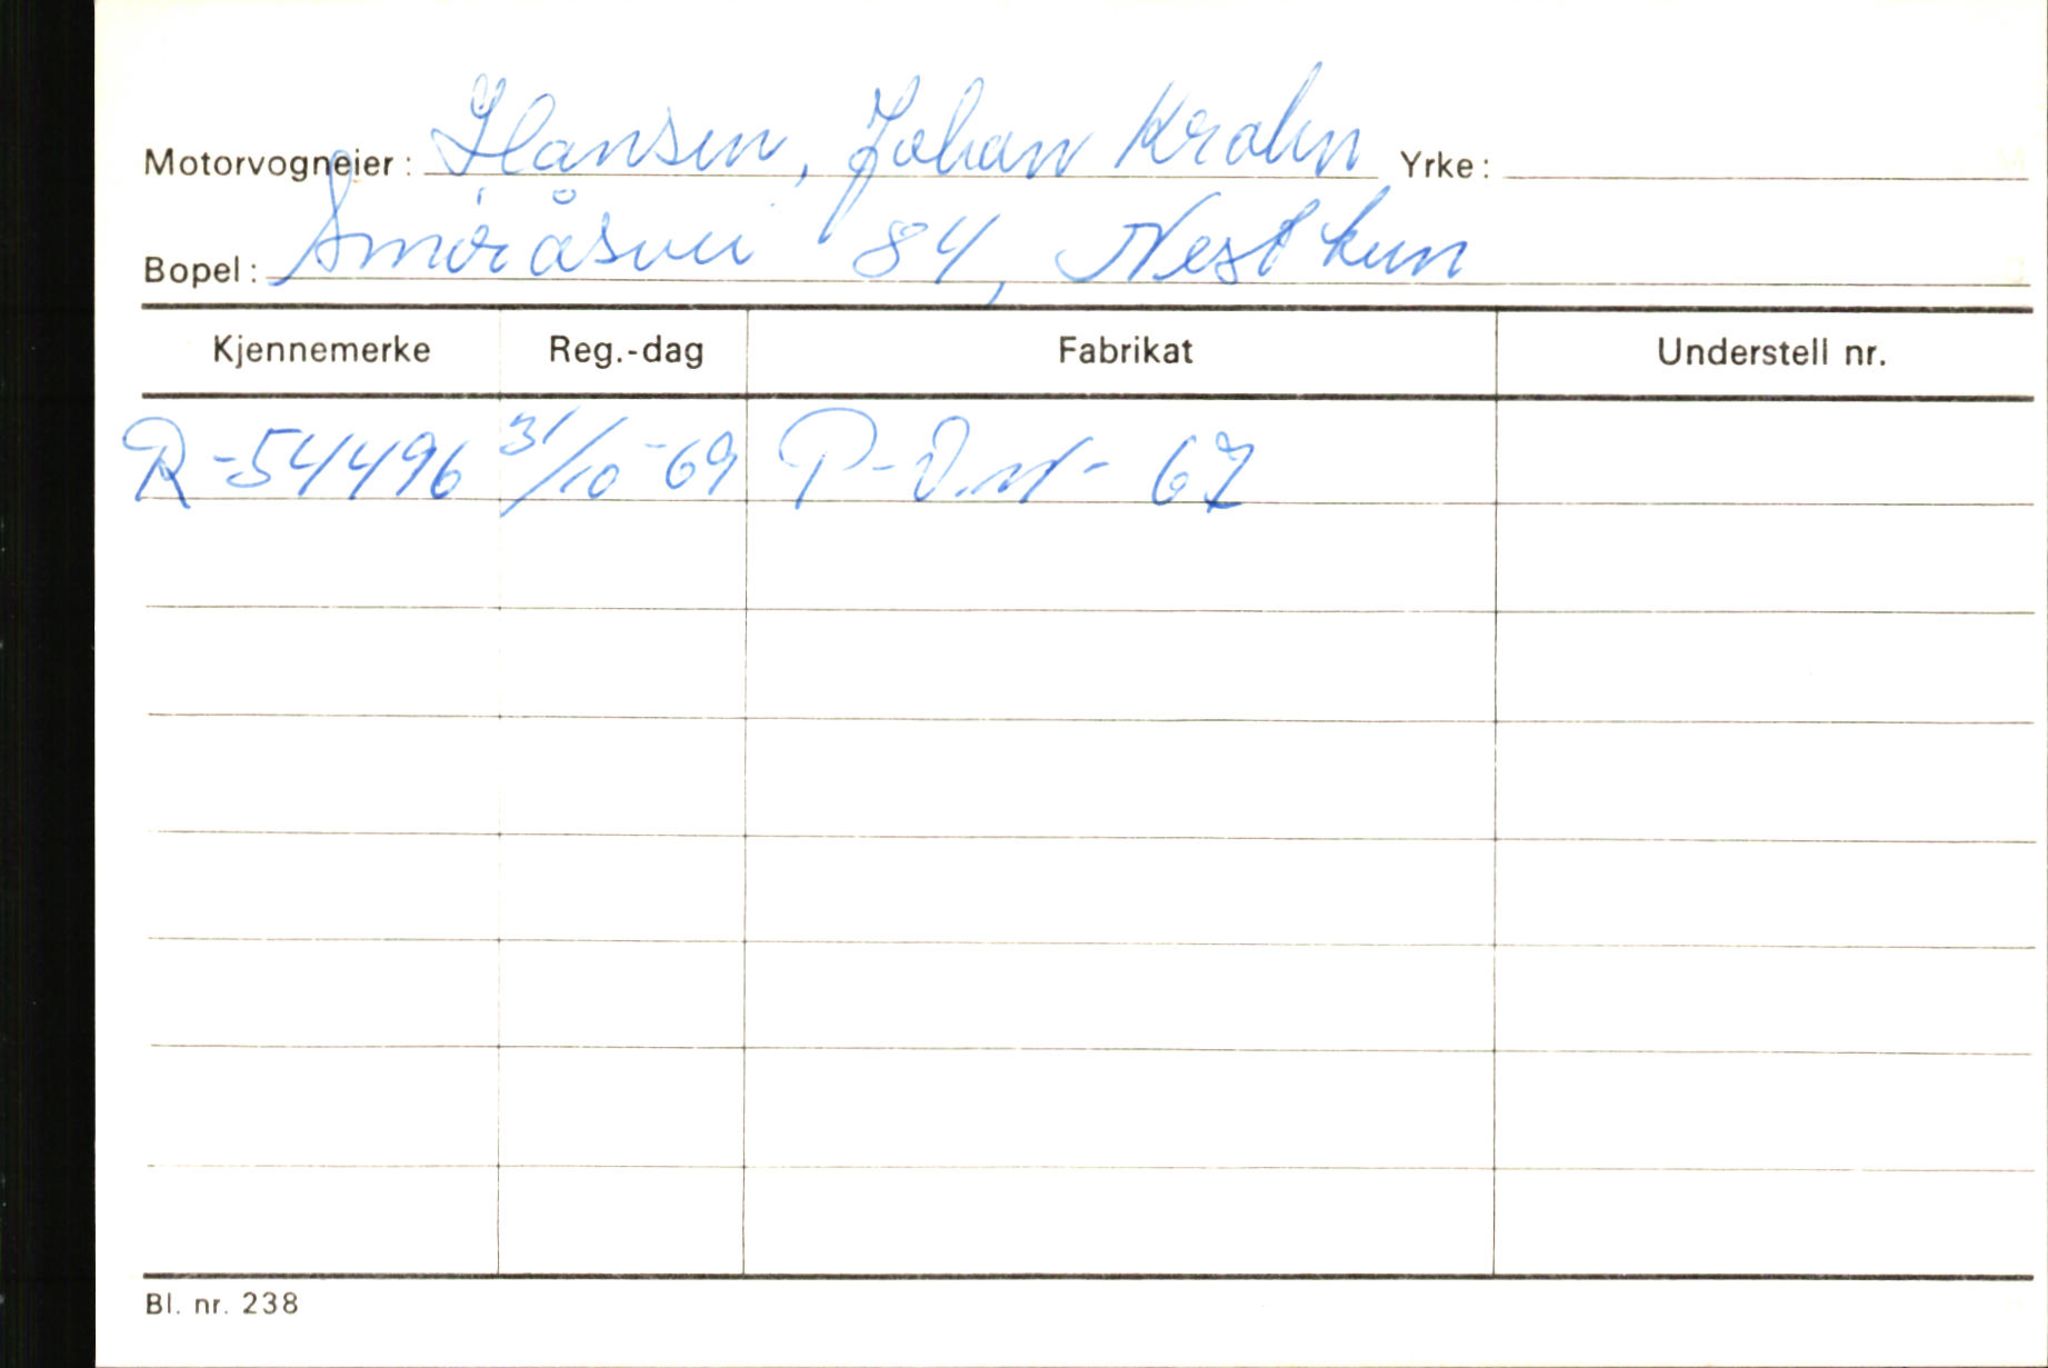 Motorvogneier: Hansen, Johan Krohn Yrke:
Bopel: Smøråsvei 84, Nesttun
Kjennemerke Reg.-dag Fabrikat Understell nr.
R-54496 31/10-69 P-V.W- 67
Bl. nr. 238